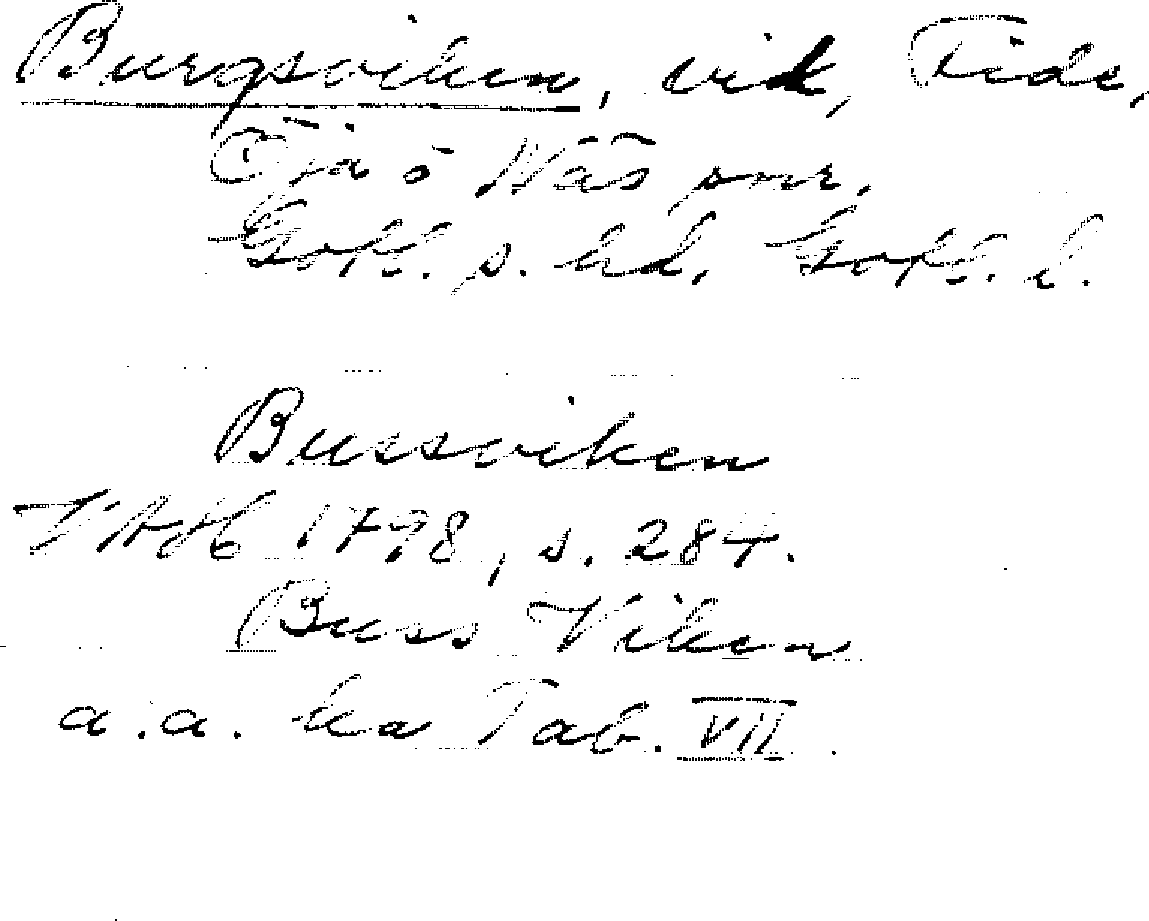 Burgsviken, vik, Fide,
Öja o Näs snr,
Gotl. s. hd, Gotl. l.
Bussviken
VAH 1798, s. 284.
Buss Viken
a.a. ka Tab. VII.